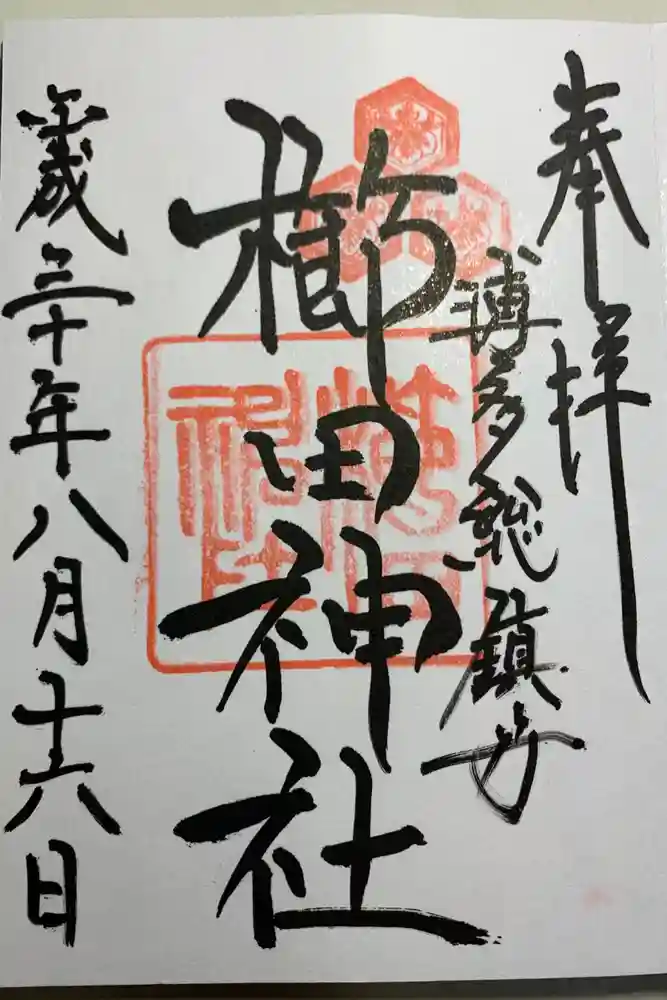 奉拝
博多総鎮守
櫛田神社
櫛田神社
歳三十年八月十六日